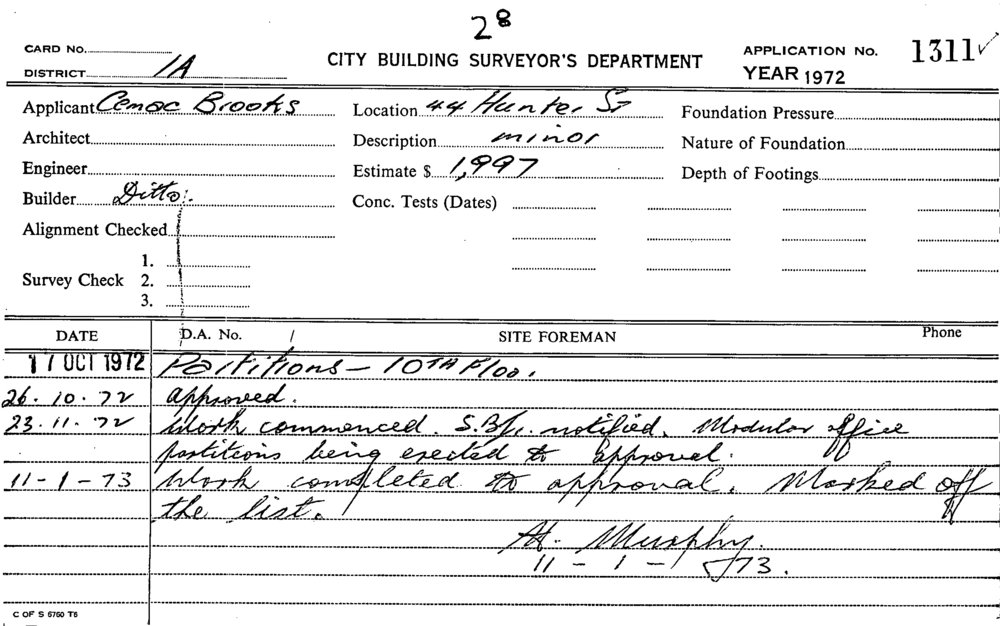 28
CARD No.
CITY BUILDING SURVEYOR'S DEPARTMENT
APPLICATION No. 1311
DISTRICT 1A
YEAR 1972
Applicant Cemac Brooks
Location 44 Hunter St
Foundation Pressure
Architect
Description minor
Nature of Foundation
Engineer
Estimate $ 1,997
Depth of Footings
Builder Ditto.
Conc. Tests (Dates)
Alignment Checked
1.
Survey Check 2.
3.
DATE D.A. No. / SITE FOREMAN Phone
17 OCT 1972 Partitions - 10TH Floor.
26.10.72 Approved.
23.11.72 Work commenced. notified. Modular office
partitions being erected to approval.
11-1-73 Work completed to approval. Marked off
the list.
Murphy.
11-1-73.
C OF S 6760 T6